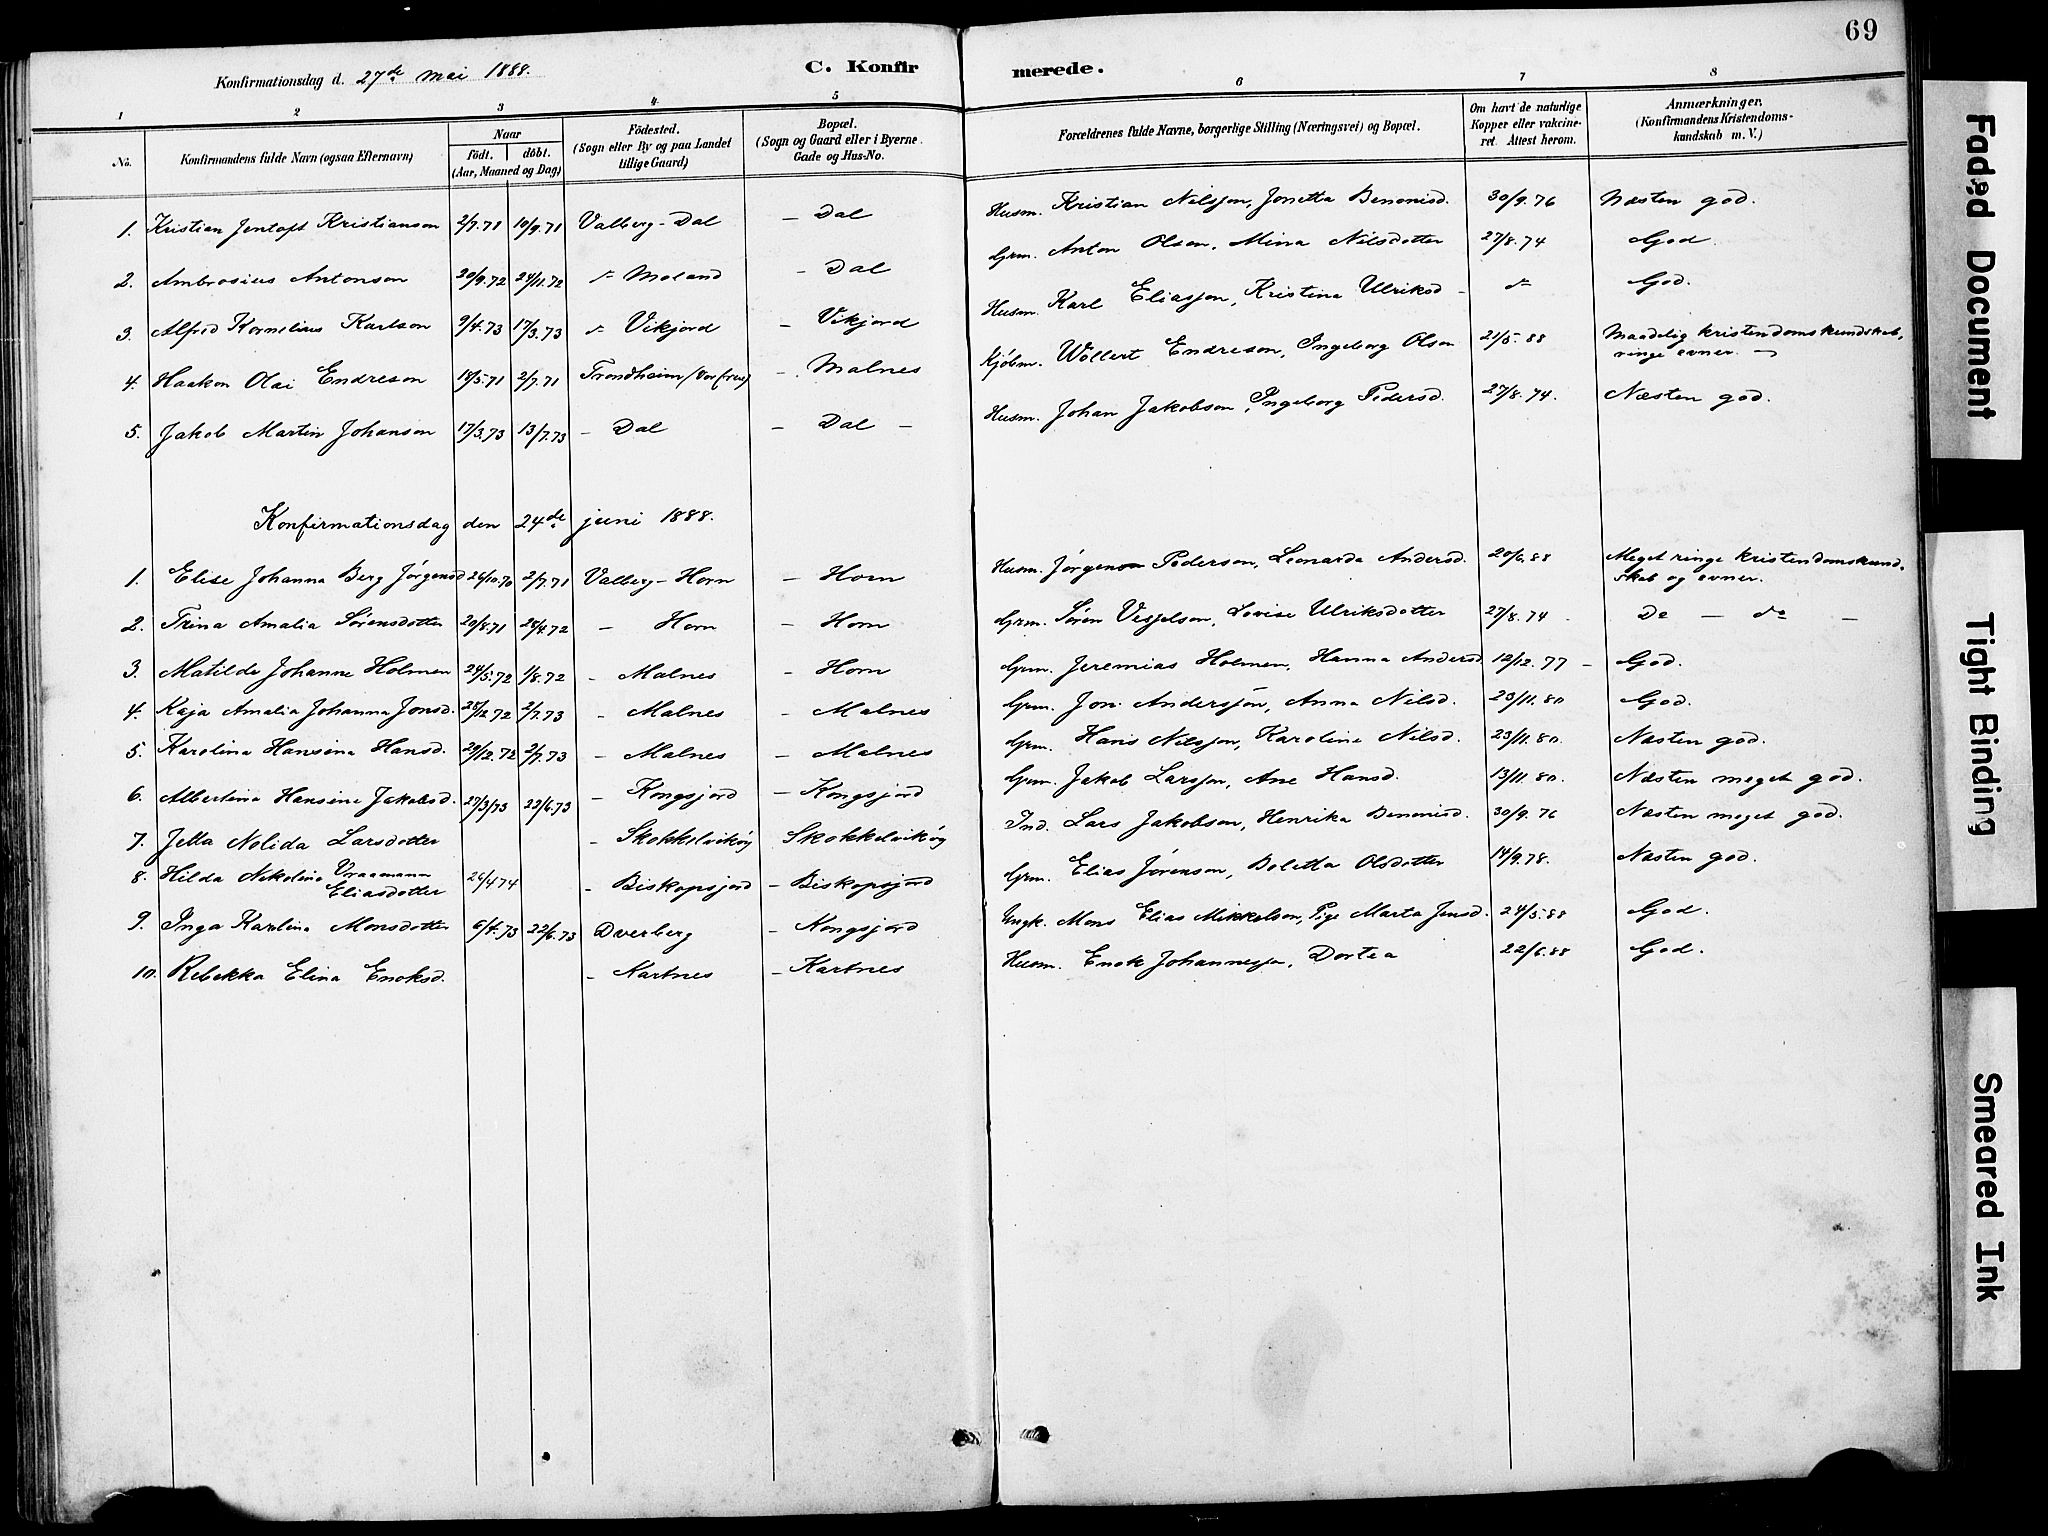 69
Konfirmationsdag d. 27de mai 1888. C. Konfirmerede.
1 2 3 4 5 6 7 8
No. Konfirmandens fulde Navn (ogsaa Efternavn) Naar födt. döbt. (Aar, Maaned og Dag) Födested. (Sogn eller By og paa Landet tillige Gaard) Bopæl. (Sogn og Gaard eller i Byerne Gade og Hus-No. Forældrenes fulde Navne, borgerlige Stilling (Næringsvei) og Bopæl. Om havt de naturlige Kopper eller vakcineret. Attest herom. Anmærkninger. (Konfirmandens Kristendomskundskab m. V.)
1. Kristian Jentoft Kristianson 2/7.71 10/9.71 Valberg - Dal - Dal Husm. Kristian Nilsson, Jonetta Benonisd. 30/9.76 Næsten god.
2. Ambrosius Antonson 20/9.72 24/11.72 Moland - Dal Grm. Anton Olsen, Mina Nilsdotter 27/8.74 God.
3. Alfred Kornelius Karlson 9/4.73 17/3.73 Vikjord - Vikjord Husm. Karl Eliasson, Kristina Ulriksd - do God.
4. Haakon Olai Endreson 2/7.71 Trondheim - Malnes Kjöbm. Wollert Endreson, Ingeborg Olsen 21/5.88 Maadelig kristendomskundskab, ringe evner.
5. Jakob Martin Johanson 17/3.73 13/7.73 - Dal - Dal - Husm. Johan Jakobson, Ingeborg Pedersd. 27/8.74. Næsten god.
Konfirmationsdag den 24de juni 1888.
1. Elise Johanna Berg Jørgensd 26/10.70 2/7.71 Valberg - Horn - Horn Husm. Jørgen Pederson, Leonarda Andersd. 20/6.88 Meget ringe kristendomskundskab og evner.
2. Trina Amalia Sørensdotter 20/8.71 28/4.72 - Horn - Horn Grm. Søren Lovise Ulriksdotter 27/8.74 - Do - do -
3. Matilde Johanne Holmen 24/5.72 1/8.72 - Malnes - Horn Grm. Jeremias Holmen, Hanna Andersd. 12/12.77 - God.
4. Kaja Amalia Johanna Jonsd. 28/12.72 2/7.73 - Malnes - Malnes Grm. Jon Andersjön, Anna Nilsd. 23/11.80 God.
5. Karolina Hansina Hansd. 29/12.72 2/7.73 - Malnes - Malnes Grm. Hans Nilsson, Karoline Nilsd. 23/11.80. Næsten god.
6. Albertina Hansine Jakobsd. 27/3/73 22/6.73 - Kongsjord - Kongsjord Grm. Jakob Larsson, Ane Hansd. 13/11.80. Næsten meget god.
7. Jetta Nolida Larsdotter - Skokkelvikög Skokkelvikög Ind. Lars Jakobson, Henrika Benonisd. 30/9.76 Næsten meget god.
8. Hilda Nikoline Vraamann Eliasdotter 26/4.74 - Biskopsjord - Biskopsjord Grm. Elias Jørenson, Boletta Olsdotter 14/9.78. Næsten god.
9. Inga Karolina Monsdotter 6/4.73 22/6.73 Dverberg - Kongsjord Ungk. Mons Elias Mikkelson, Pige Marta Jensd. 24/5.88 God.
10. Rebekka Elina Enoksd. - Kartnes - Kartnes Husm. Enok Johannessn, Dortea 22/6.88 God.
Faded Document
Tight Binding
Smeared Ink